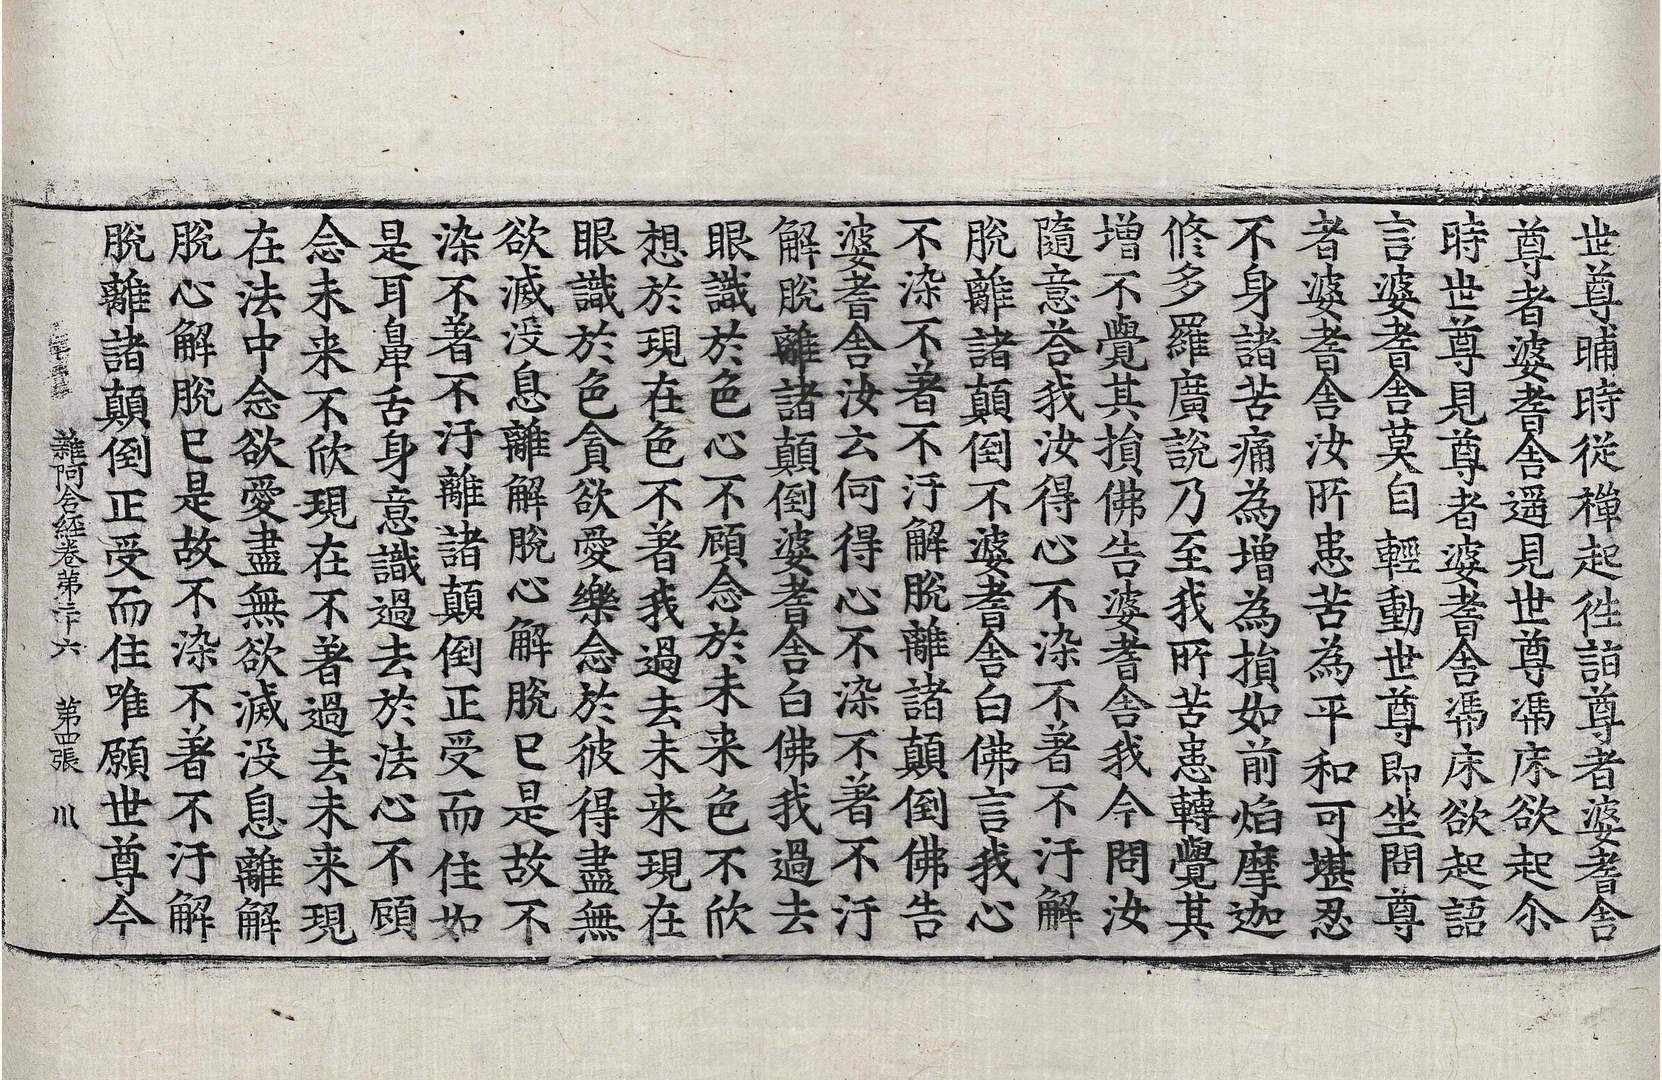 世尊晡時從禪起徃詣尊者婆耆舍
尊者婆耆舍遥見世尊馮床欲起尒
時世尊見尊者婆耆舍馮床欲起語
言婆耆舍莫自輕動世尊即坐問尊
者婆耆舍汝所患苦為平和可堪忍
不身諸苦痛為增為損如前焰摩迦
修多羅廣說乃至我所苦患轉覺其
增不覺其損佛告婆耆舍我今問汝
隨意荅我汝得心不染不著不汙解
脫離諸顛倒不婆耆舍白佛言我心
不染不著不汙解脫離諸顛倒佛告
婆耆舍汝云何得心不染不著不汙
解脫離諸顛倒婆耆舍白佛我過去
眼識於色心不顧念於未来色不欣
想於現在色不著我過去未来現在
眼識於色貪欲愛樂念於彼得盡無
欲滅没息離解脫心解脫已是故不
染不著不汙離諸顛倒正受而住如
是耳鼻舌身意識過去於法心不顧
念未来不欣現在不著過去未来現
在法中念欲愛盡無欲滅没息離解
脫心解脫已是故不染不著不汙解
脫離諸顛倒正受而住唯願世尊今
雜阿含経卷第三十六 第四張 川